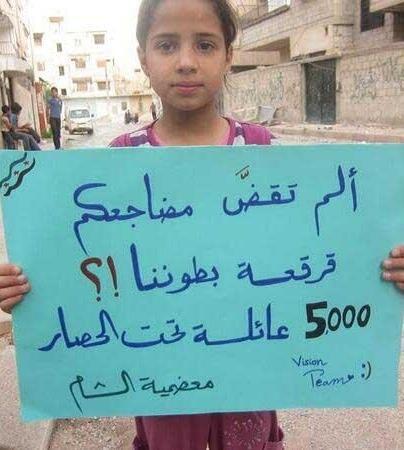 ألم تقضَّ مضاجعكم
قرقعة بطوننا !؟
5,000 عائلة تحت الحصار
Vision
Team :)
معضمية الشام